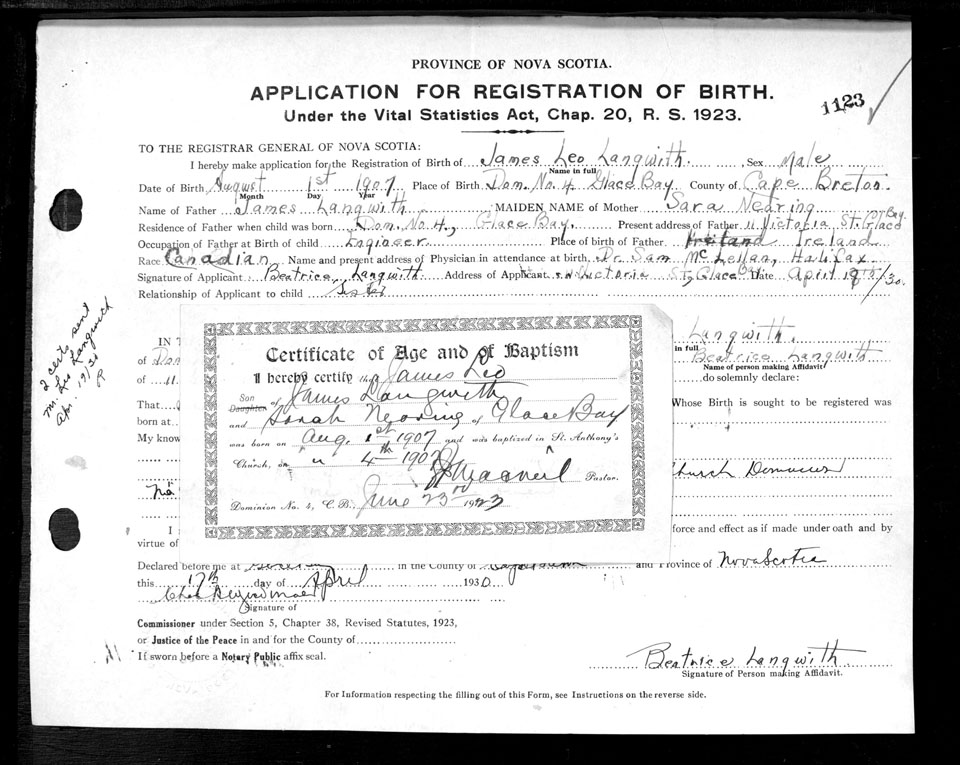 PROVINCE OF NOVA SCOTIA.
APPLICATION FOR REGISTRATION OF BIRTH.
1123
Under the Vital Statistics Act, Chap. 20, R. S. 1923.
TO THE REGISTRAR GENERAL OF NOVA SCOTIA:
I hereby make application for the Registration of Birth of James Leo Langwith. Sex Male
Name in full
Date of Birth August 1st 1907 Place of Birth Dom. No. 4 Glace Bay County of Cape Breton
Month Day Year
Name of Father James Langwith MAIDEN NAME of Mother Sara Nearing
Residence of Father when child was born Dom. No 4., Glace Bay. Present address of Father 11 Victoria St. Glace Bay.
Occupation of Father at Birth of child Engineer Place of birth of Father Ireland Ireland
Race Canadian Name and present address of Physician in attendance at birth, Dr. Sam McLellan, Halifax
Signature of Applicant Beatrice Langwith Address of Applicant Victoria St, Glace Bay Date April 19th/30.
Relationship of Applicant to child Sister
2 certs sent
Mr. Leo Langwith
Apr. 19/30
R
IN T
Langwith
in full
of Dom
Beatrice Langwith
Name of person making Affidavit
of 11.
do solemnly declare:
That
Whose Birth is sought to be registered was
born at
My know
Church Dominion
No
I
force and effect as if made under oath and by
virtue of
Certificate of Age and of Baptism
I hereby certify that James Leo
Son Daughter of James Langwith
and Sarah Nearing of Glace Bay
was born on Aug. 1st 1907 and was baptized in St. Anthony's
Church, on " 4th 1907
MacNeil Pastor.
Dominion No. 4, C.B., June 23rd 1923
Declared before me at in the County of and Province of Nova Scotia
this 17th day of April 1930
Signature of
Commissioner under Section 5, Chapter 38, Revised Statutes, 1923,
or Justice of the Peace in and for the County of
If sworn before a Notary Public affix seal.
Beatrice Langwith
Signature of Person making Affidavit.
For Information respecting the filling out of this Form, see Instructions on the reverse side.